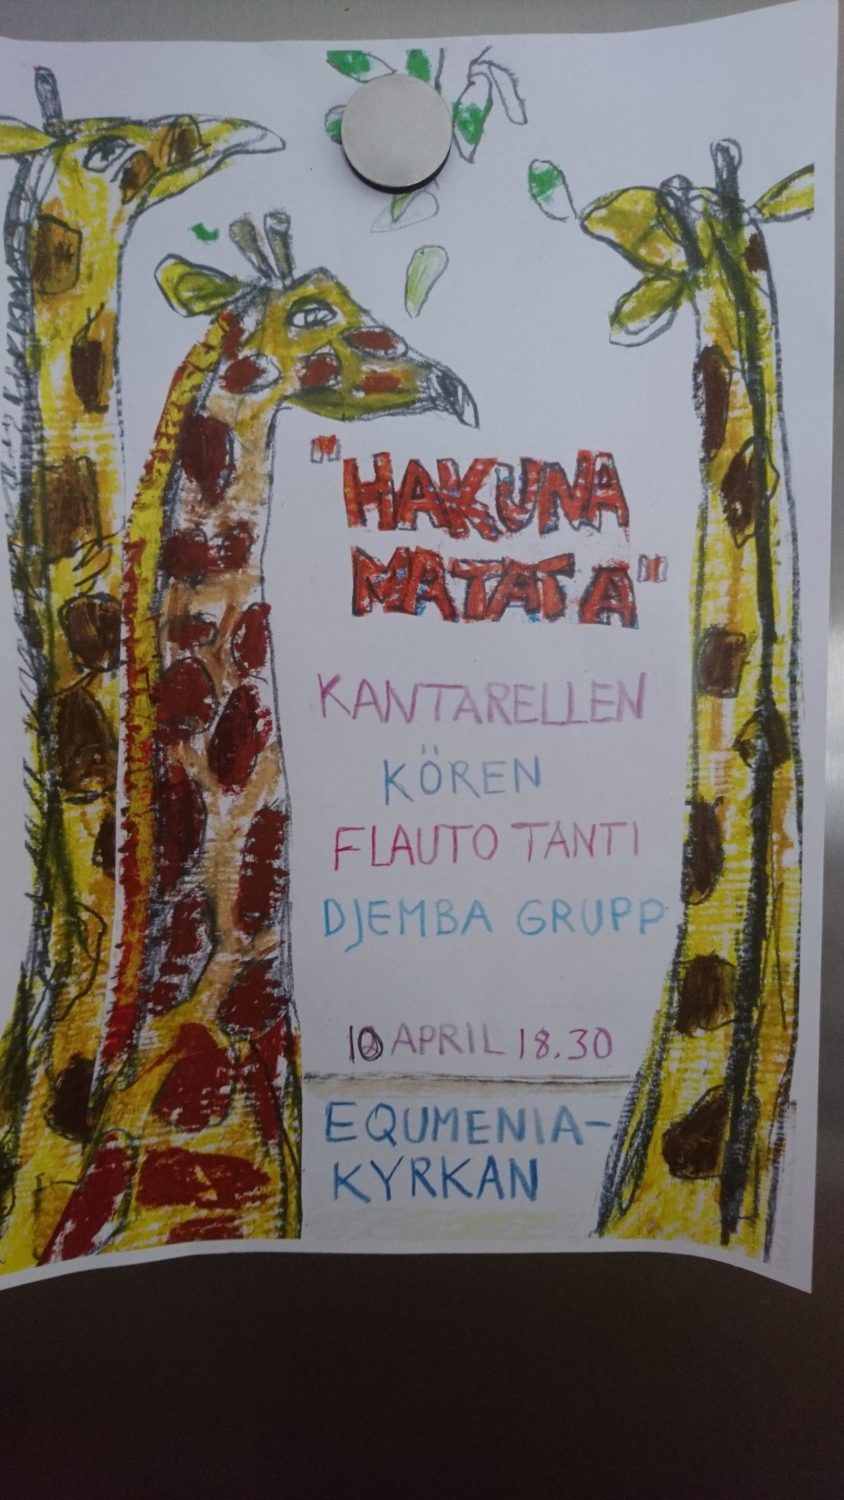 "HAKUNA
MATATA"
KANTARELLEN
KÖREN
FLAUTO TANTI
DJEMBA GRUPP
10 APRIL 18.30
EQUMENIA-
KYRKAN